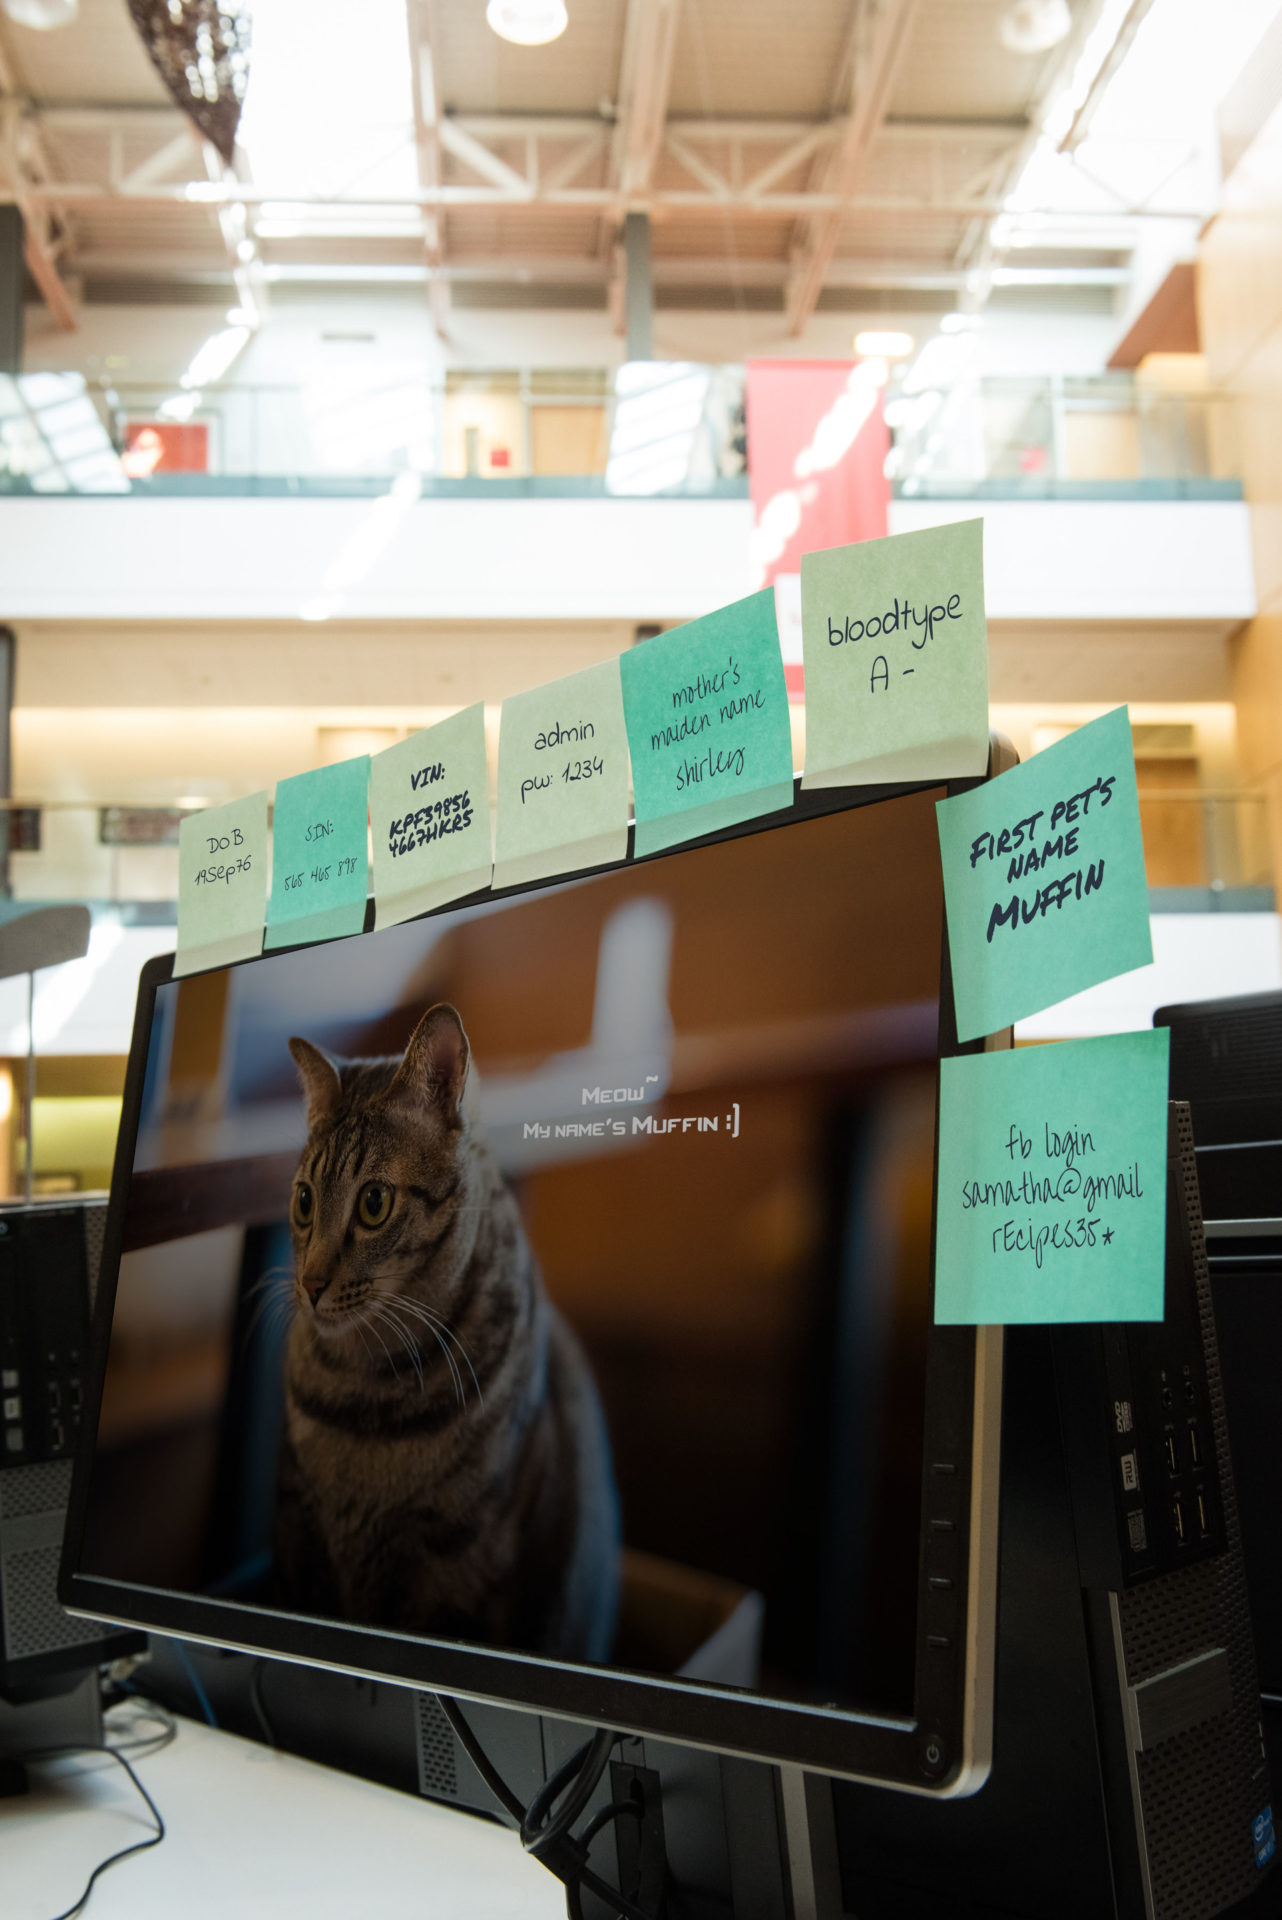 DOB
19Sep76
SIN:
565 465 898
VIN:
KPF39856
4667HKR5
admin
pw: 1234
mother's
maiden name
shirley
bloodtype
A -
FIRST PET'S
NAME
MUFFIN
fb login
samatha@gmail
rEcipes35*
MEOW~
MY NAME'S MUFFIN :]
DVD
RW